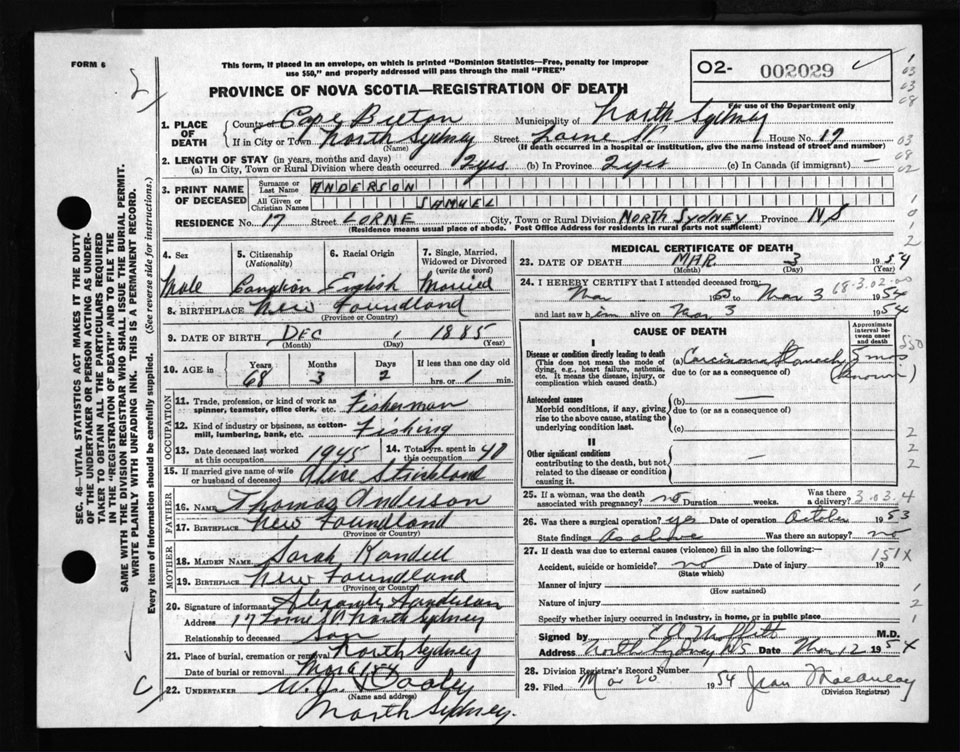 FORM 6
This form, if placed in an envelope, on which is printed "Dominion Statistics—Free, penalty for improper
use $50," and properly addressed will pass through the mail "FREE"
O2- 002029
For use of the Department only
PROVINCE OF NOVA SCOTIA—REGISTRATION OF DEATH
1. PLACE OF DEATH
County of Cape Breton Municipality of North Sydney
If in City or Town North Sydney Street Lorne St. House No. 17
(Name) (If death occurred in a hospital or institution, give the name instead of street and number)
2. LENGTH OF STAY (in years, months and days)
(a) In City, Town or Rural Division where death occurred 2 yrs. (b) In Province 2 yrs (c) In Canada (if immigrant) —
3. PRINT NAME OF DECEASED
Surname or Last Name ANDERSON
All Given or Christian Names SAMUEL
RESIDENCE No. 17 Street LORNE City, Town or Rural Division NORTH SYDNEY Province NS
(Residence means usual place of abode. Post Office Address for residents in rural parts not sufficient)
4. Sex
Male
5. Citizenship (Nationality)
Canadian
6. Racial Origin
English
7. Single, Married, Widowed or Divorced (write the word)
Married
8. BIRTHPLACE New Foundland
(Province or Country)
9. DATE OF BIRTH DEC 1 1885
(Month) (Day) (Year)
10. AGE in
Years Months Days If less than one day old
68 3 2 hrs. or min.
OCCUPATION
11. Trade, profession, or kind of work as spinner, teamster, office clerk, etc. Fisherman
12. Kind of industry or business, as cotton-mill, lumbering, bank, etc. Fishing
13. Date deceased last worked at this occupation 1945
14. Total yrs. spent in this occupation 40
15. If married give name of wife or husband of deceased Alice Strickland
FATHER
16. NAME Thomas Anderson
17. BIRTHPLACE New Foundland
(Province or Country)
MOTHER
18. MAIDEN NAME Sarah
19. BIRTHPLACE New Foundland
(Province or Country)
20. Signature of informant Anderson
Address 17 Lorne St North Sydney
Relationship to deceased Son
21. Place of burial, cremation or removal North Sydney
Date of burial or removal
22. UNDERTAKER W. J. Dooley
(Name and address)
North Sydney.
MEDICAL CERTIFICATE OF DEATH
23. DATE OF DEATH MAR. 3 1954
(Month) (Day) (Year)
24. I HEREBY CERTIFY that I attended deceased from
Nov 1953 to Mar 3 1954
and last saw him alive on Mar 3 1954
CAUSE OF DEATH
Approximate interval between onset and death
I
Disease or condition directly leading to death (a) Carcinoma Stomach 5 mos
(This does not mean the mode of dying, e.g., heart failure, asthenia, etc. It means the disease, injury, or complication which caused death.) due to (or as a consequence of) (known)
Antecedent causes (b) —
Morbid conditions, if any, giving rise to the above cause, stating the underlying condition last. due to (or as a consequence of)
(c)
II
Other significant conditions
contributing to the death, but not related to the disease or condition causing it. —
25. If a woman, was the death associated with pregnancy? no Duration weeks. Was there a delivery? 3.03.4
26. Was there a surgical operation? yes Date of operation October 1953
State findings As above Was there an autopsy? no
27. If death was due to external causes (violence) fill in also the following:— 151X
Accident, suicide or homicide? no Date of injury 19
(State which)
Manner of injury
(How sustained)
Nature of injury
Specify whether injury occurred in industry, in home, or in public place
Signed by M.D.
Address North Sydney N.S. Date Mar 12 1954
28. Division Registrar's Record Number
29. Filed Mar 20 1954 Jean Macaulay
(Division Registrar)
SEC. 46—VITAL STATISTICS ACT MAKES IT THE DUTY
OF THE UNDERTAKER OR PERSON ACTING AS UNDER-
TAKER TO OBTAIN ALL THE PARTICULARS REQUIRED
IN THE "REGISTRATION OF DEATH" AND TO FILE THE
SAME WITH THE DIVISION REGISTRAR WHO SHALL ISSUE THE BURIAL PERMIT.
WRITE PLAINLY WITH UNFADING INK. THIS IS A PERMANENT RECORD.
Every item of information should be carefully supplied. (See reverse side for instructions.)